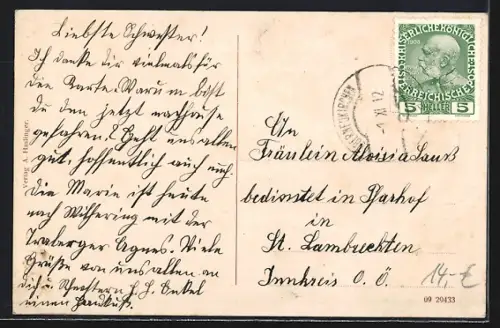 Liebste Schwester!
Ich danke dir vielmals für
die Karte. Warum bist
du den jetzt nachhause
gefahren? Geht uns allen
gut, hoffentlich auch euch.
Die Marie ist heute
nach Wilhering mit der
Traberger Agnes. Viele
Grüße von uns allen an
dich u. Schwestern H. H. Onkel
einen Handkuß.
Verlag A. Haslinger,
KAISERLICHE KÖNIGLICHE
ÖSTERREICHISCHE
1908
5 HELLER 5
21 IX
An
Fräulein Aloisia Lauß
bedienstet in Pfarhof
in
St. Lambrechten
Innkreis O. Ö.
14,- €
09 20433